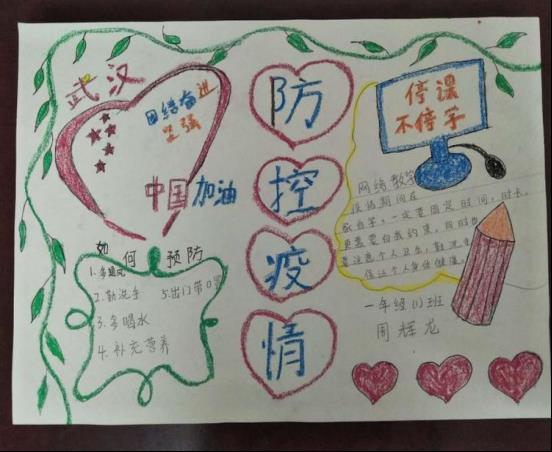 武汉
团结奋进
坚强
中国加油
防
控
疫
情
停课
不停学
如何预防
1.多通风
2.勤洗手 5.出门带口罩
3.多喝水
4.补充营养
网络教学
疫情期间在
家自学,一定要固定时间,时长,
更需要自我约束,同时也
要注意个人卫生,勤洗手
保证个人身体健康。
一年级(1)班
周辉龙